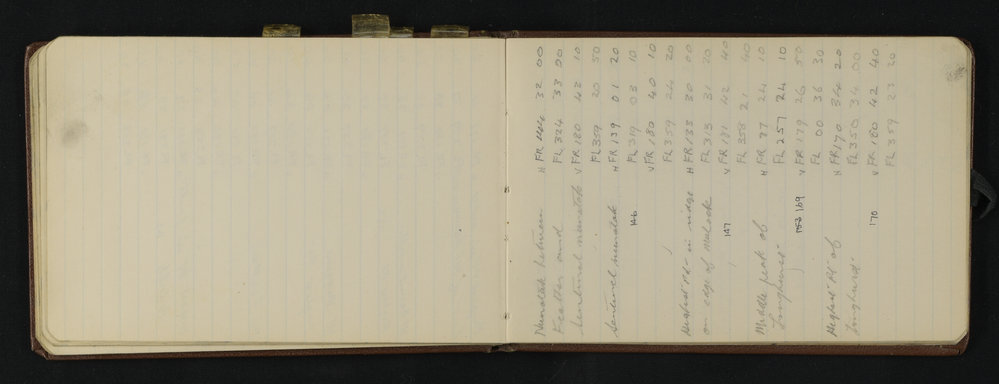 Nunatak between H FR 144 32 00
Feather and FL 324 33 00
Sentinel nunatak V FR 180 42 10
FL 359 20 50
Sentinel nunatak H FR 139 01 20
146 FL 319 03 10
V FR 180 40 10
FL 359 24 20
Highest Pt in ridge H FR 133 30 00
on edge of Mulock FL 313 31 20
147 V FR 181 42 40
FL 358 21 40
Middle peak of H FR 77 24 10
Longhurst FL 257 24 10
169 V FR 179 26 50
FL 00 36 30
Highest Pt of H FR 170 34 20
Longhurst FL 350 34 00
170 V FR 180 42 40
FL 359 23 20